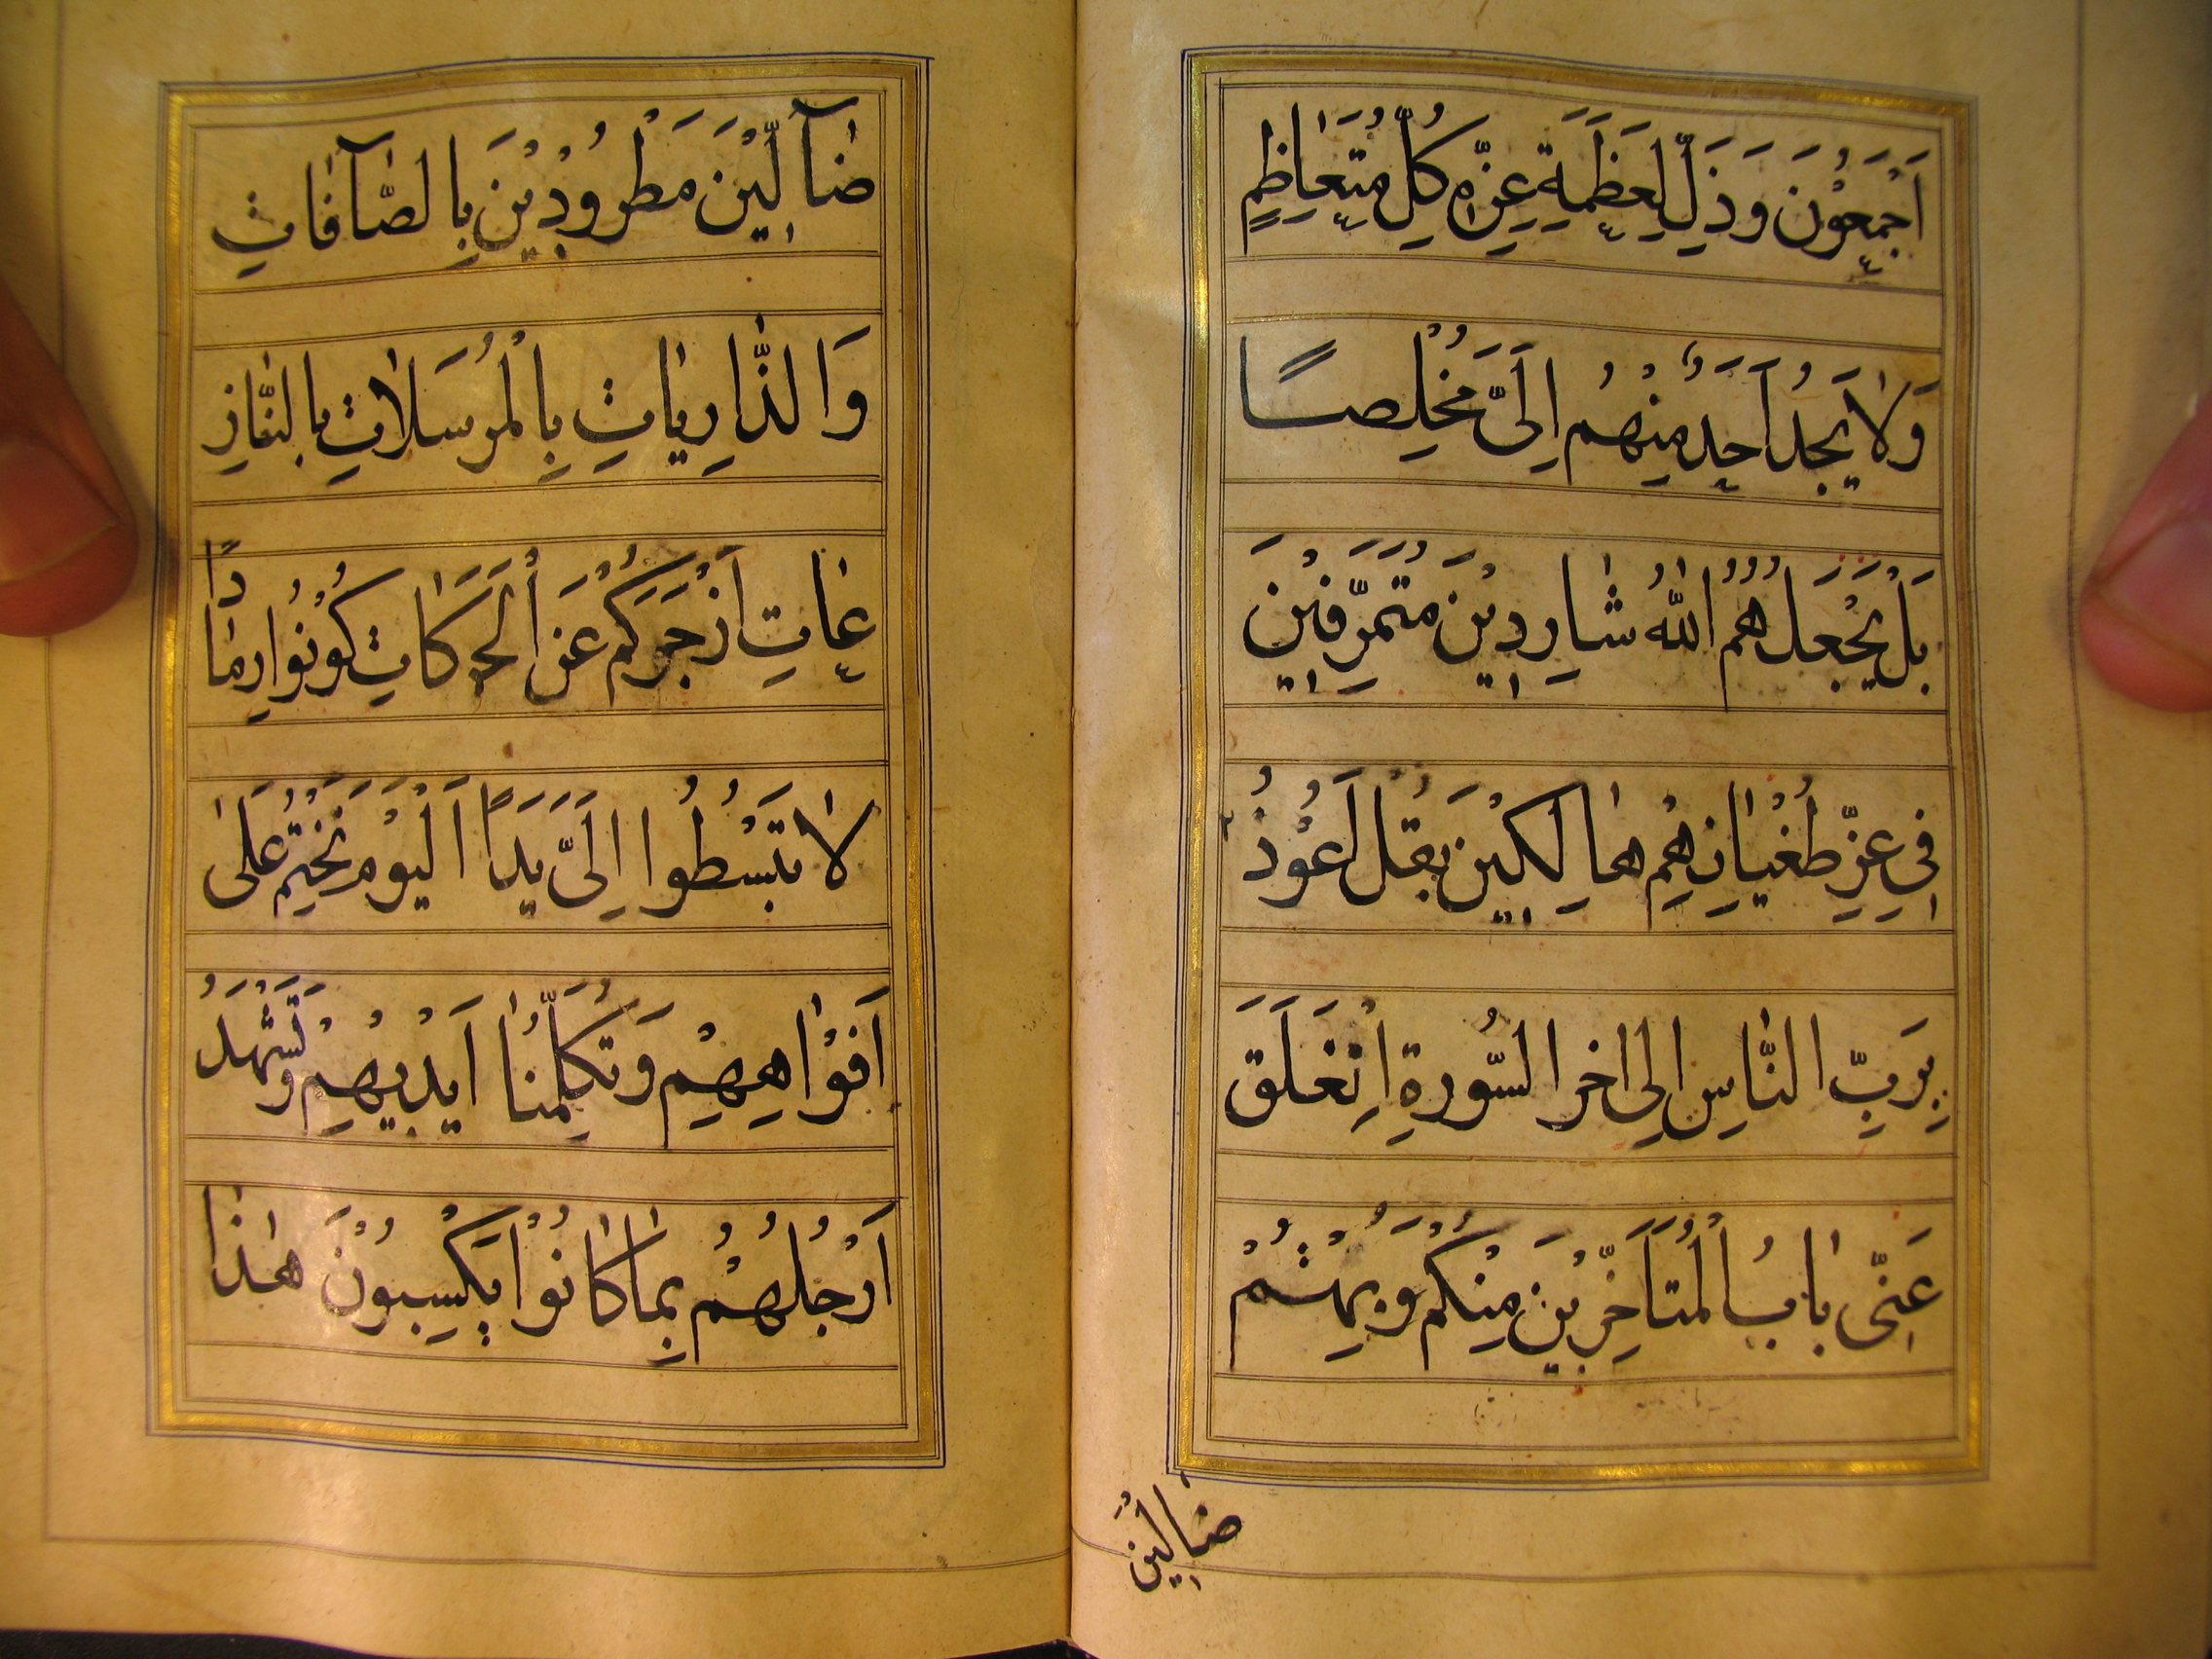 اَجْمَعُوْنَ وَذَلَّ لِعَظَمَةِ عِزِّهٖ كُلُّ مُتَعَاظِمٍ
وَلَا يَجِدُ اَحَدٌ مِنْهُمْ اِلَیَّ مَخْلِصًا
بَلْ يَجْعَلُهُمُ اللّٰهُ شَارِدِيْنَ مُتَمَرِّقِيْنَ
فِي عِزِّ طُغْيَانِهِمْ هَالِكِيْنَ بِقُلْ اَعُوْذُ
بِرَبِّ النَّاسِ اِلٰى اٰخِرِ السُّورَةِ اِنْغَلَقَ
عَنِّی بَابُ الْمُتَاَخِّرِيْنَ مِنْكُمْ وَبِهِمْتُمْ
ضَالِّيْنَ
ضَآلِّيْنَ مَطْرُوْدِيْنَ بِالصَّآفَّاتِ
وَالذَّارِيَاتِ بِالْمُرْسَلَاتِ بِالنَّازِ
عَاتِ اَزْجُرَكُمْ عَنِ الْحَرَكَاتِ كُوْنُوْا رَمَادًا
لَا تَبْسُطُوا اِلَیَّ يَدًا اَلْيَوْمَ نَخْتِمُ عَلٰى
اَفْوَاهِهِمْ وَتُكَلِّمُنَا اَيْدِيْهِمْ وَتَشْهَدُ
اَرْجُلُهُمْ بِمَا كَانُوْا يَكْسِبُوْنَ هٰذَا